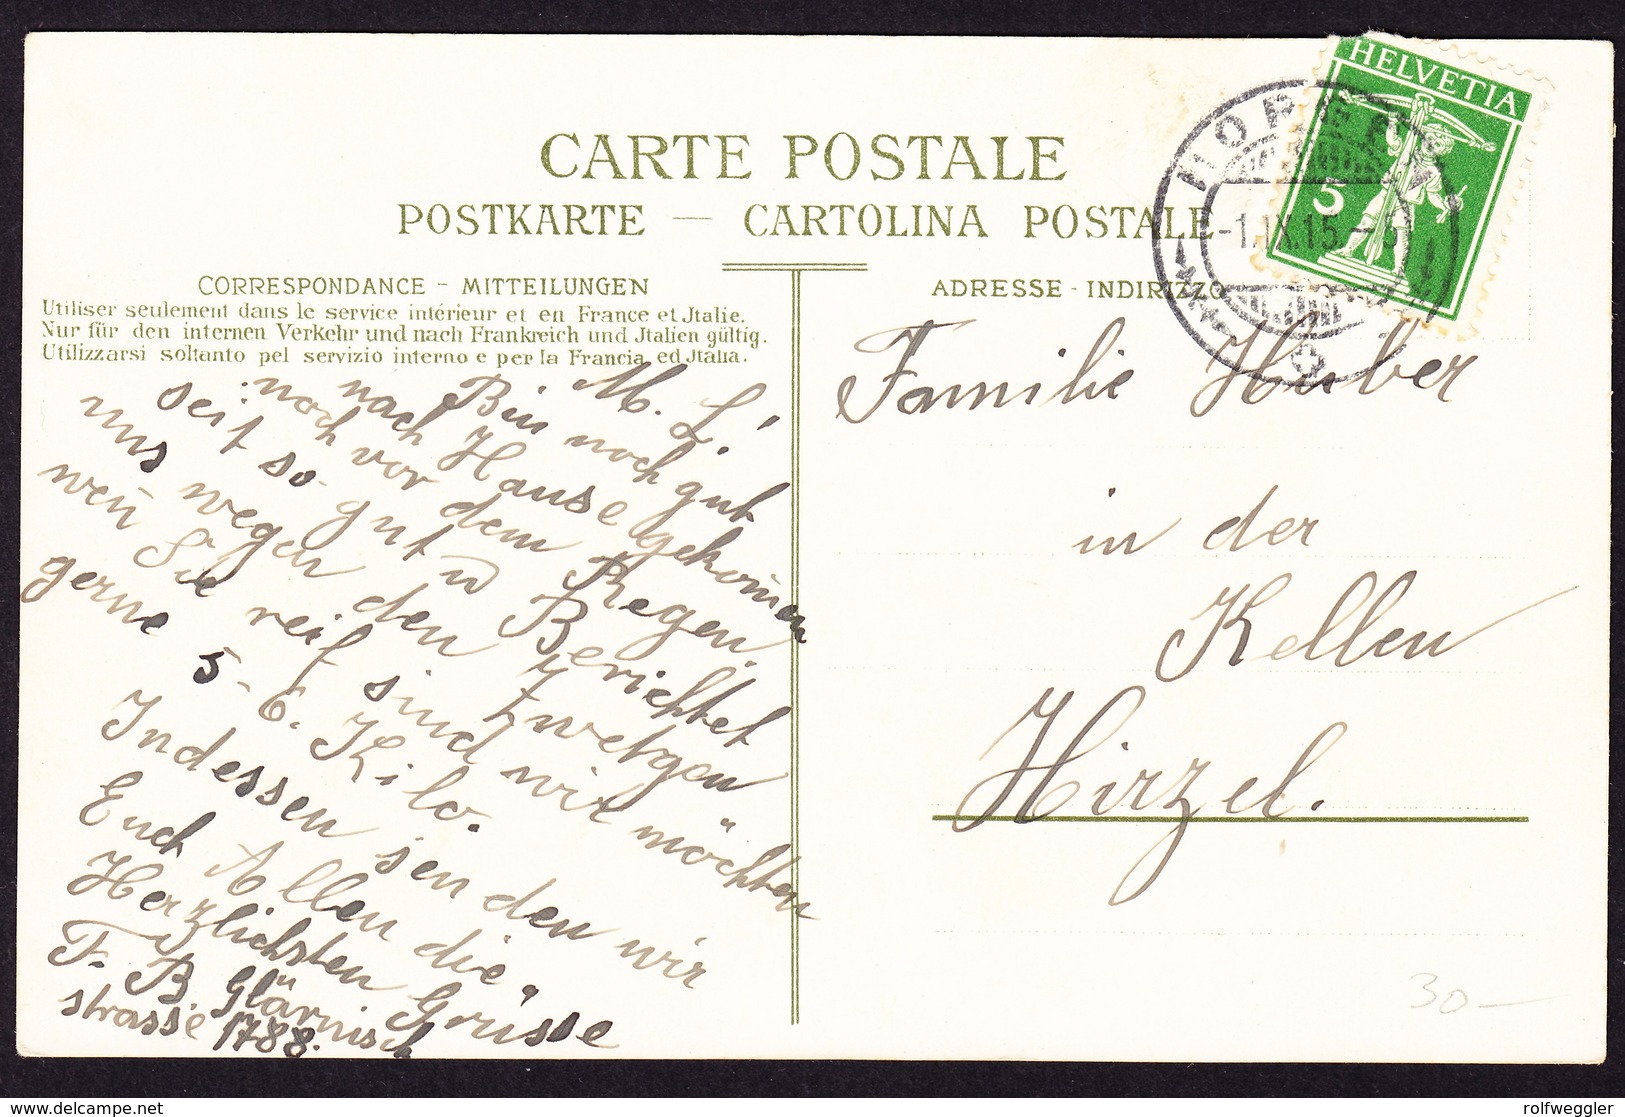 CARTE POSTALE
POSTKARTE — CARTOLINA POSTALE
CORRESPONDANCE - MITTEILUNGEN
Utiliser seulement dans le service intérieur et en France et Jtalie.
Nur für den internen Verkehr und nach Frankreich und Jtalien gültig.
Utilizzarsi soltanto pel servizio interno e per la Francia ed Jtalia.
ADRESSE - INDIRIZZO
HELVETIA
5
HORGEN
-1.IX.15.-5
M. L.!
Bin noch gut
nach Hause gekom̄en
noch vor dem Regen.
seit so gut ū Berichtet
uns wegen den Zwetgen
wen̄ Sie reif sind wir möchten
gerne 5-6. Kilo.
Indessen sen den wir
Euch Allen die
Herzlichsten Grüsse
F. B Glärnisch
strasse 1788.
Familie Huber
in der
Kellen
Hirzel.
30-
delcampe.net
rolfweggler